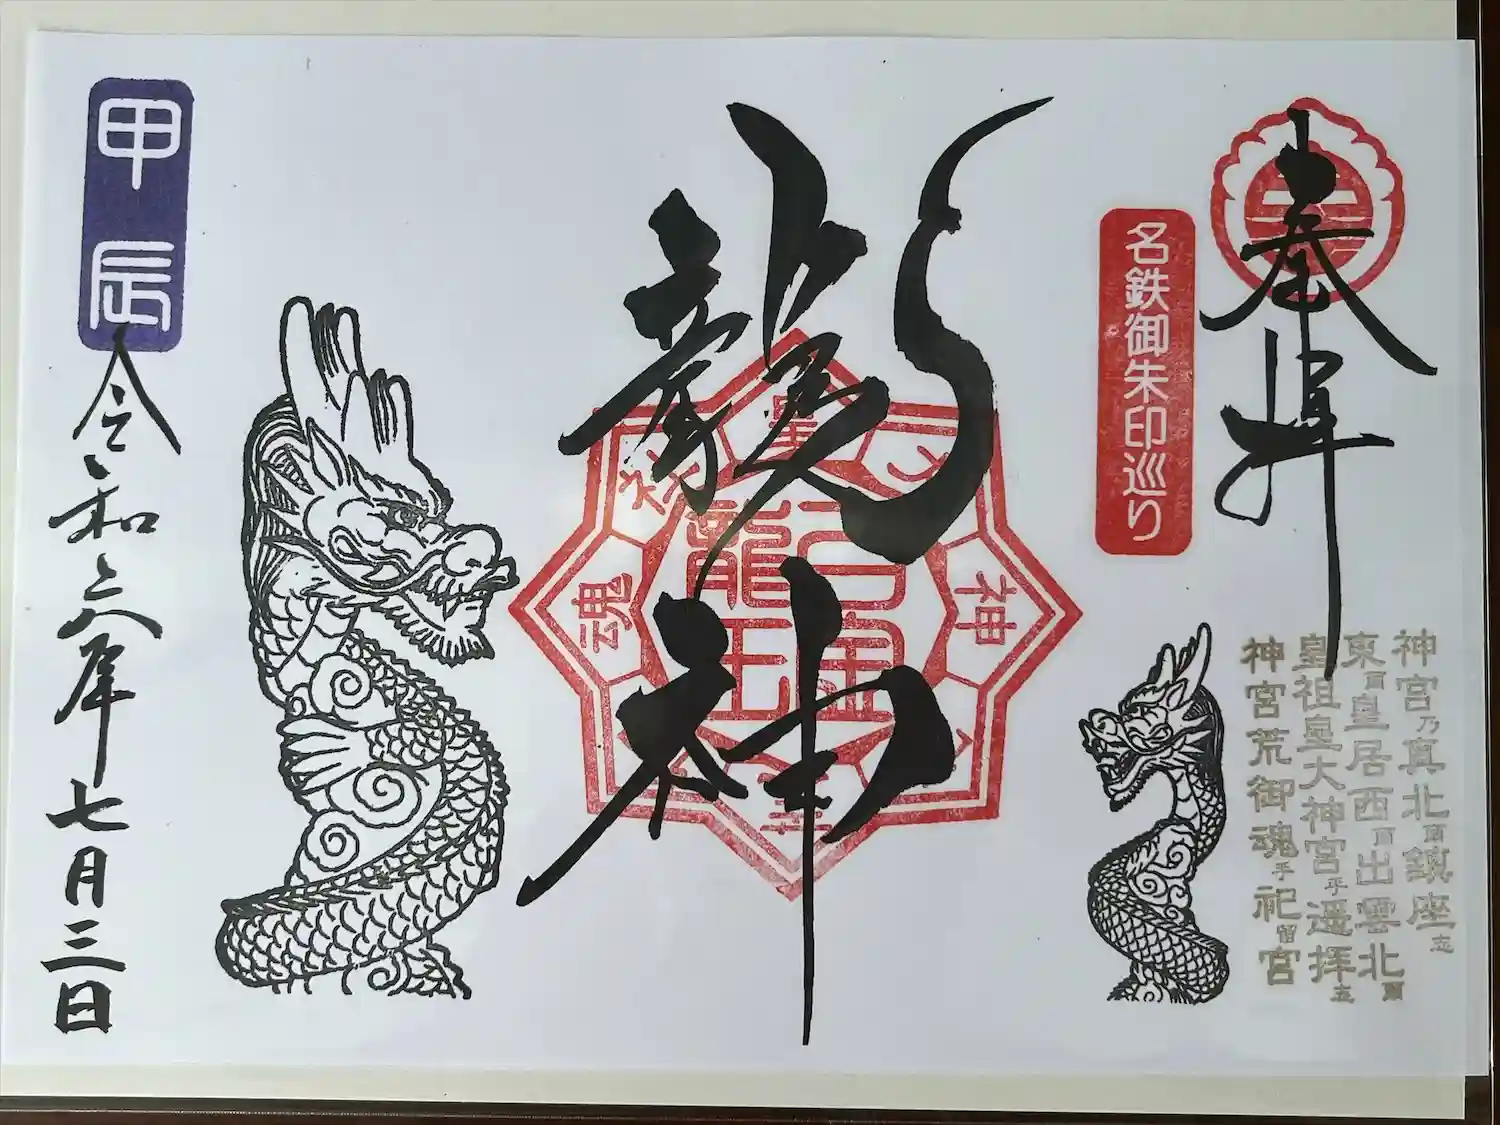 奉拝
名鉄御朱印巡り
神宮乃真北爾鎮座志
東爾皇居西爾出雲北爾
皇祖皇大神宮乎遥拝志
神宮荒御魂乎祀留宮
龍神
神
魂
龍王
甲辰
令和六年七月三日